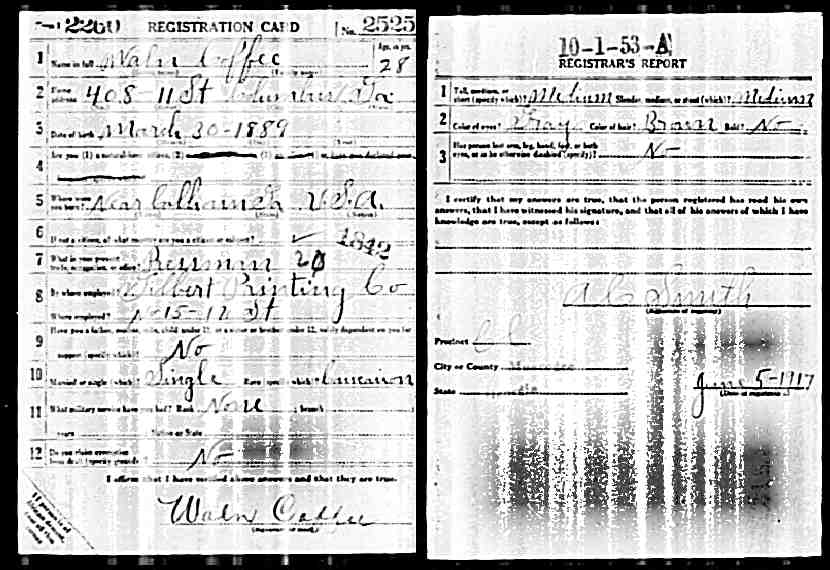 2260 REGISTRATION CARD No. 2525
1 Name in full Waln Coffee Age, in yrs. 28
2 Home address 408-11 St Columbus Ga
3 Date of birth March 30-1889
4 Are you (1) a natural-born citizen, (2)
5 Where were you born? Near U.S.A.
6 If not a citizen, of what country are you a citizen or subject? ✓ 1842
7 What is your present trade, occupation, or office? 20
8 By whom employed? Gilbert Printing Co
Where employed? No-15-12 St
9 Have you a father, mother, wife, child under 12, or a sister or brother under 12, solely dependent on you for
support (specify which)? No
10 Married or single (which)? Single Race (specify which)? Caucasion
11 What military service have you had? Rank None ; branch
years ; Nation or State
12 Do you claim exemption from draft (specify grounds)? No
I affirm that I have verified above answers and that they are true.
Waln Coffee
10-1-53-A
REGISTRAR'S REPORT
1 Tall, medium, or short (specify which)? Medium Slender, medium, or stout (which)? Medium
2 Color of eyes? Gray Color of hair? Brown Bald? No
3 Has person lost arm, leg, hand, foot, or both eyes, or is he otherwise disabled (specify)? No
I certify that my answers are true, that the person registered has read his own
answers, that I have witnessed his signature, and that all of his answers of which I have
knowledge are true, except as follows:
A C Smith
(Signature of registrar)
Precinct
City or County Muscogee
State
June 5-1917
(Date of registration)